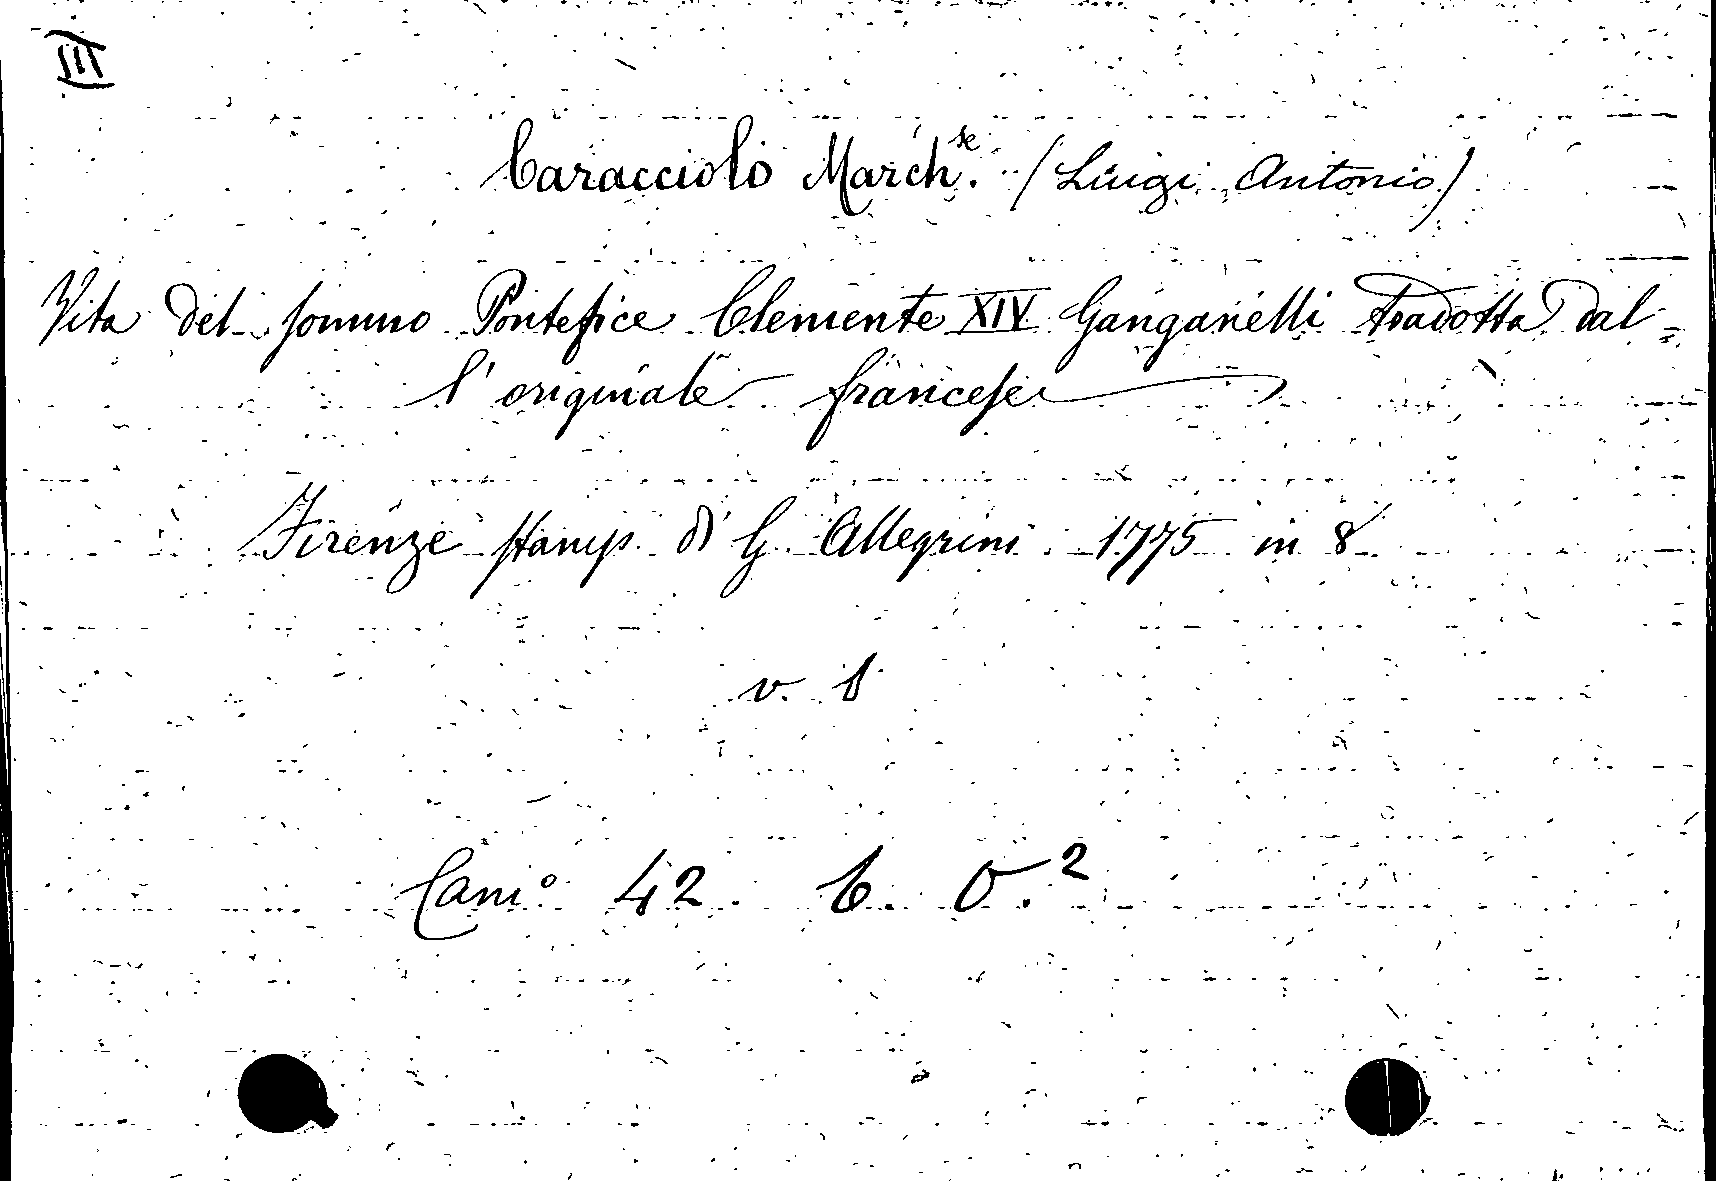 III
Caracciolo March.se (Luigi Antonio)
Vita del sommo Pontefice Clemente XIV Ganganelli tradotta dal=
l'originale francese
Firenze stamp. di G. Allegrini 1775 in 8
v. b
Cam.o 42. b. O.2